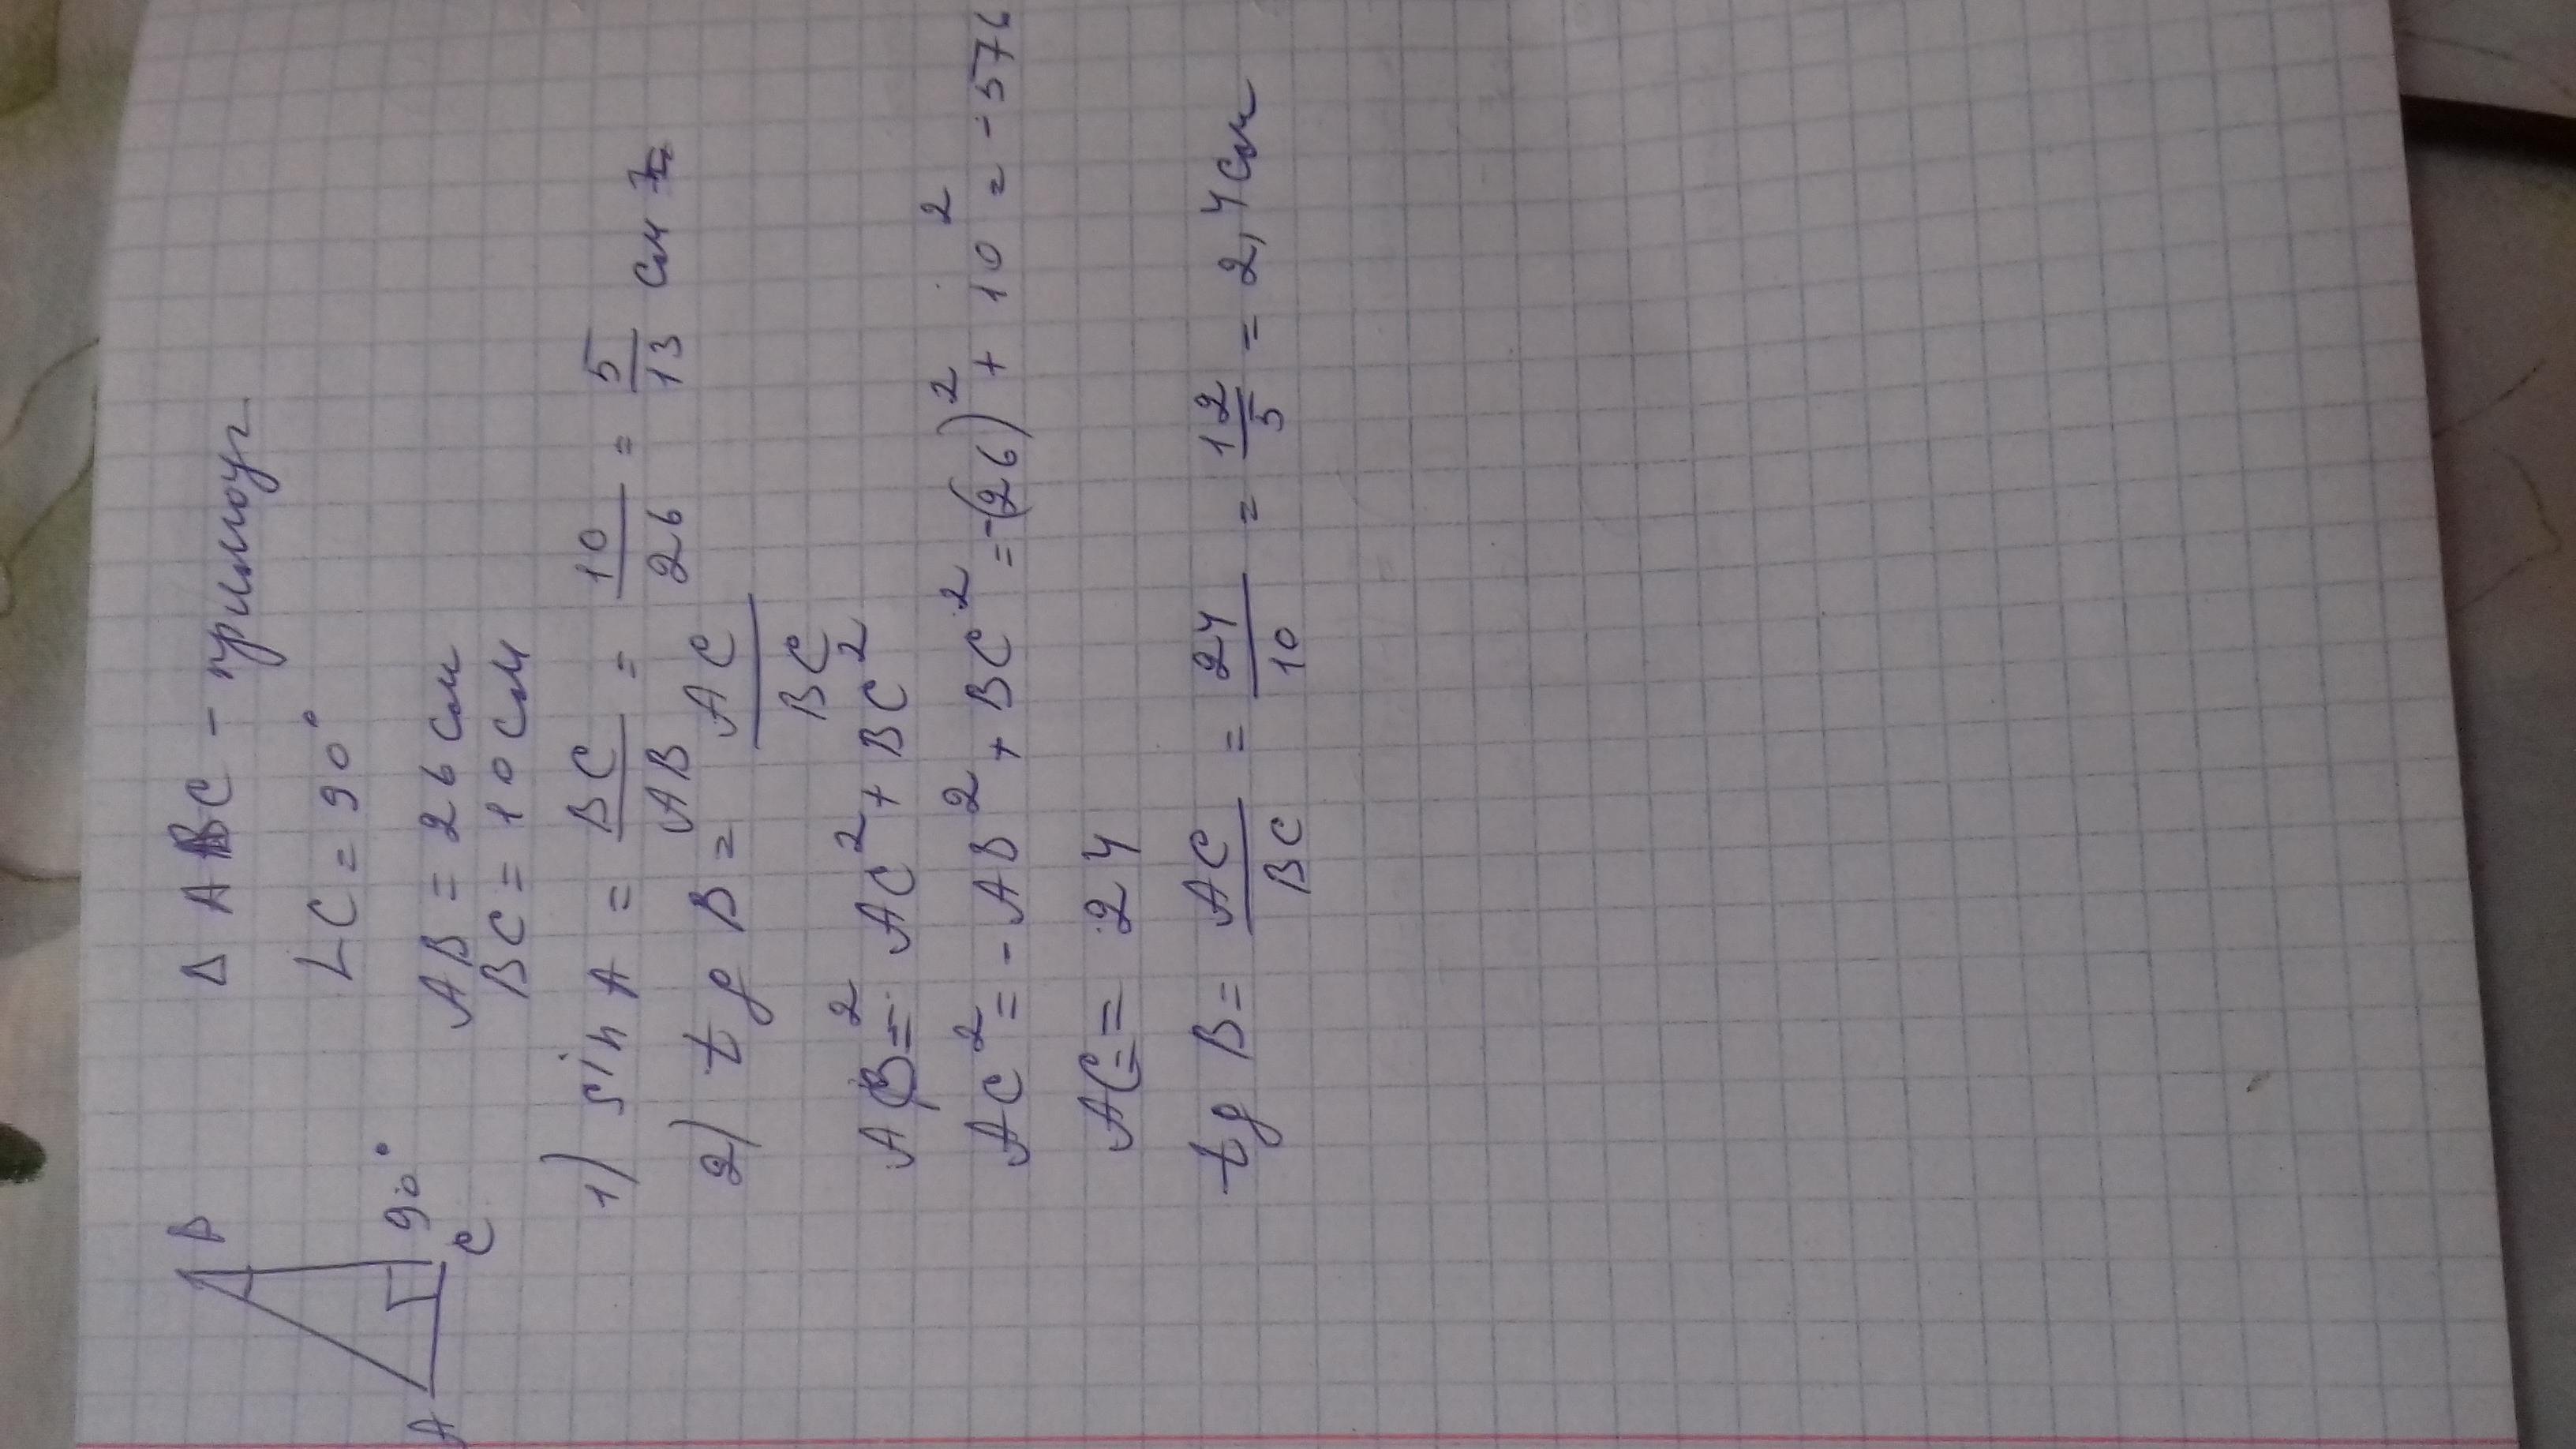 B
90°
A
C
Δ ABC - прямоуг
∟C = 90°
AB = 26 см
BC = 10 см
1) sin A = BC/AB = 10/26 = 5/13 см
2) tg B = AC/BC
AB² = AC² + BC²
AC² = - AB² + BC² = -(26)² + 10² = - 576
AC = 24
tg B = AC/BC = 24/10 = 12/5 = 2,4 см